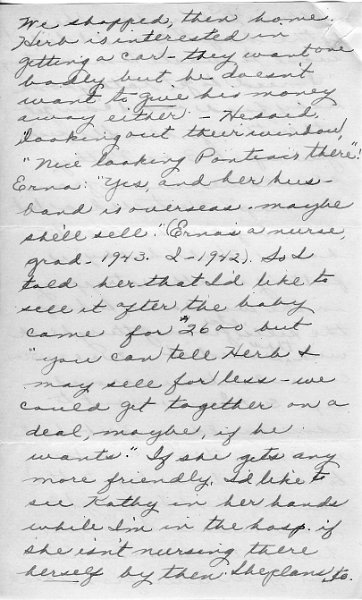 We shopped, then home.
Herb is interested in
getting a car - they want one
badly but he doesn't
want to give his money
away either - He said,
looking out their window,
"Nice looking Pontiac there"!
Erna: "Yes, and her hus-
band is overseas. maybe
she'll sell." (Erna's a nurse,
grad - 1943. I - 1942). So I
told her that I'd like to
sell it after the baby
came for $2600 but
"you can tell Herb I
may sell for less - we
could get together on a
deal, maybe, if he
wants." If she gets any
more friendly, I'd like to
see Kathy in her hands
while I'm in the hosp. if
she isn't nursing there
herself by then. She plans to.